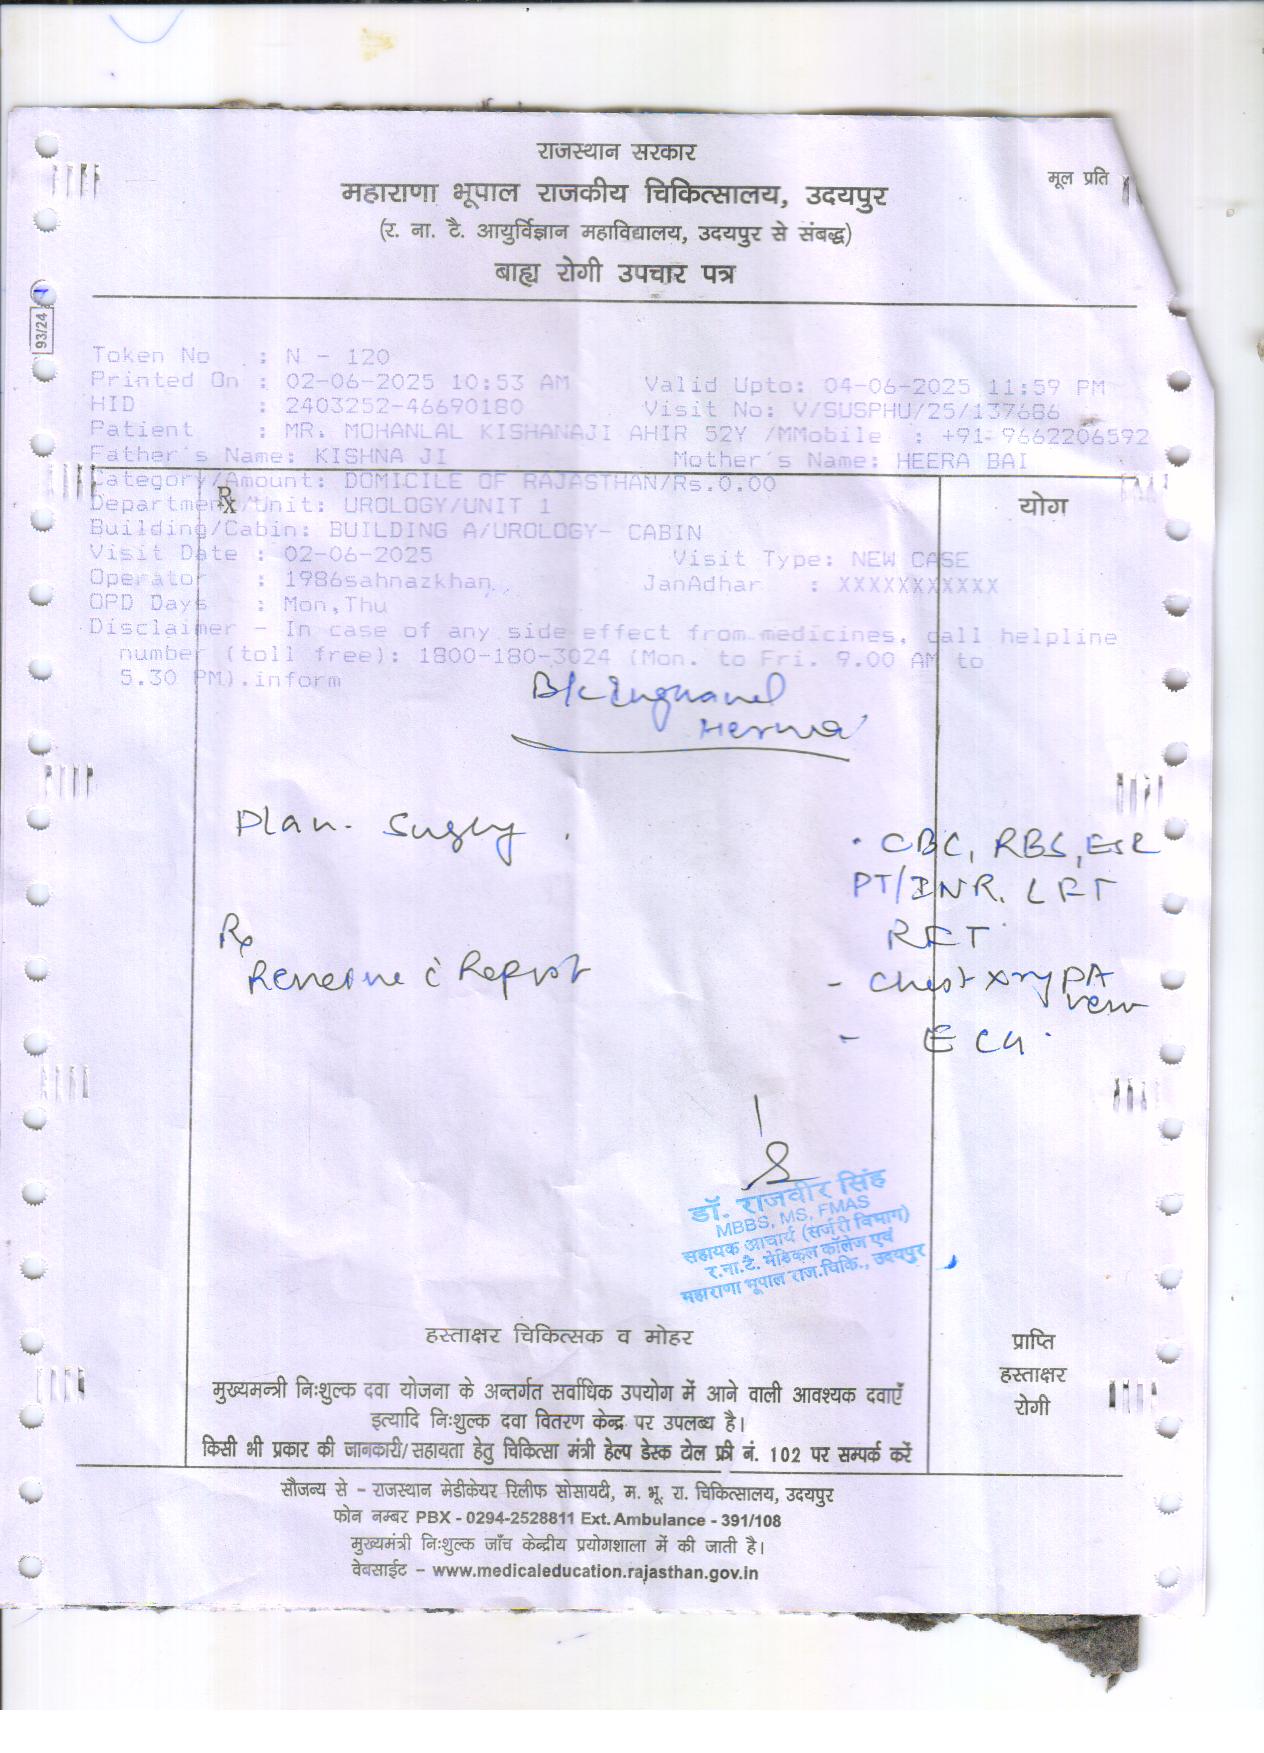 राजस्थान सरकार
मूल प्रति
महाराणा भूपाल राजकीय चिकित्सालय, उदयपुर
(र. ना. टै. आयुर्विज्ञान महाविद्यालय, उदयपुर से संबद्ध)
बाह्य रोगी उपचार पत्र
93/24
Token No : N - 120
Printed On : 02-06-2025 10:53 AM Valid Upto: 04-06-2025 11:59 PM
HID : 2403252-46690180 Visit No: V/SUSPHU/25/137686
Patient : MR. MOHANLAL KISHANAJI AHIR 52Y /MMobile : +91-9662206592
Father's Name: KISHNA JI Mother's Name: HEERA BAI
Category/Amount: DOMICILE OF RAJASTHAN/Rs.0.00
℞ योग
Department/Unit: UROLOGY/UNIT 1
Building/Cabin: BUILDING A/UROLOGY- CABIN
Visit Date : 02-06-2025 Visit Type: NEW CASE
Operator : 1986sahnazkhan, JanAdhar : XXXXXXXXXXX
OPD Days : Mon,Thu
Disclaimer - In case of any side effect from medicines, call helpline
number (toll free): 1800-180-3024 (Mon. to Fri. 9.00 AM to
5.30 PM).inform
B/L Inguinal
Hernia
Plan. Surgery.
CBC, RBS, ESR
PT/INR. LFT
RFT
Rx
Review c̄ Report
- Chest xray PA
view
- ECG.
डॉ. राजवीर सिंह
MBBS, MS, FMAS
सहायक आचार्य (सर्जरी विभाग)
र.ना.टै. मेडिकल कॉलेज एवं
महाराणा भूपाल राज.चिकि., उदयपुर
हस्ताक्षर चिकित्सक व मोहर
प्राप्ति
हस्ताक्षर
रोगी
मुख्यमन्त्री निःशुल्क दवा योजना के अन्तर्गत सर्वाधिक उपयोग में आने वाली आवश्यक दवाएँ
इत्यादि निःशुल्क दवा वितरण केन्द्र पर उपलब्ध है।
किसी भी प्रकार की जानकारी/सहायता हेतु चिकित्सा मंत्री हेल्प डेस्क टोल फ्री नं. 102 पर सम्पर्क करें
सौजन्य से – राजस्थान मेडीकेयर रिलीफ सोसायटी, म. भू. रा. चिकित्सालय, उदयपुर
फोन नम्बर PBX - 0294-2528811 Ext. Ambulance - 391/108
मुख्यमंत्री निःशुल्क जाँच केन्द्रीय प्रयोगशाला में की जाती है।
वेबसाईट – www.medicaleducation.rajasthan.gov.in